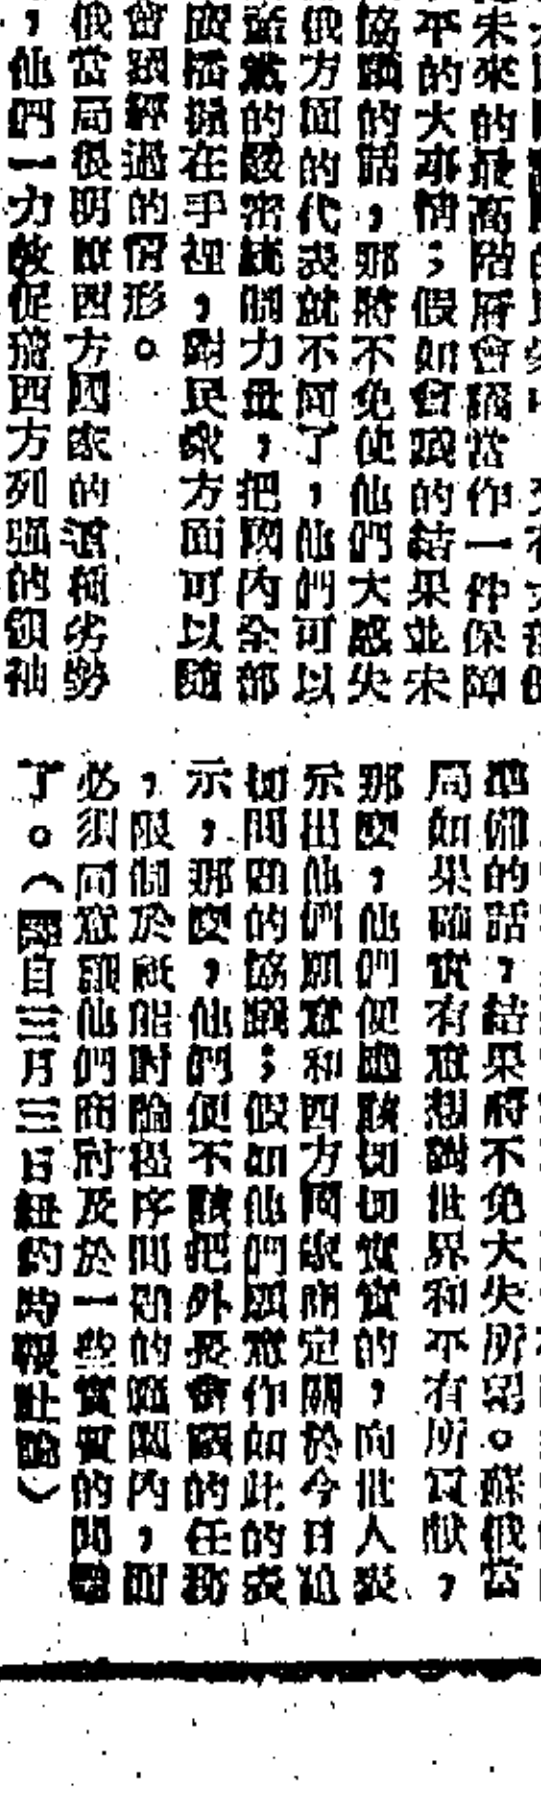 未來的最高階層會議當作一件保障
平的大事情；假如會議的結果並未
協議的話，那將不免使他們大感失
俄方面的代表就不同了，他們可以
黨的嚴密統制力量，把國內全部
播操在手裡，對民衆方面可以隨
會議經過的情形。
俄當局很明瞭西方國家的這種劣勢
，他們一力敦促西方列強的領袖
準備的話，結果將不免大失所望。蘇俄當
局如果確實有意想對世界和平有所貢獻，
那麼，他們便應該切切實實的，向世人表
示出他們願意和西方國家商定關於今日迫
切問題的協議；假如他們願意作如此的表
示，那麼，他們便不該把外長會議的任務
，限制於祇能討論程序問題的範圍內，而
必須同意讓他們商討及於一些實質的問題
了。（譯自三月三日紐約時報社論）